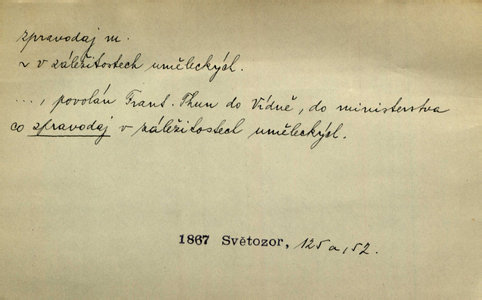 zpravodaj m.
~ v záležitostech uměleckých.
..., povolán Frant. Thun do Vídně, do ministerstva
co zpravodaj v záležitostech uměleckých.
1867 Světozor, 125a, 52.